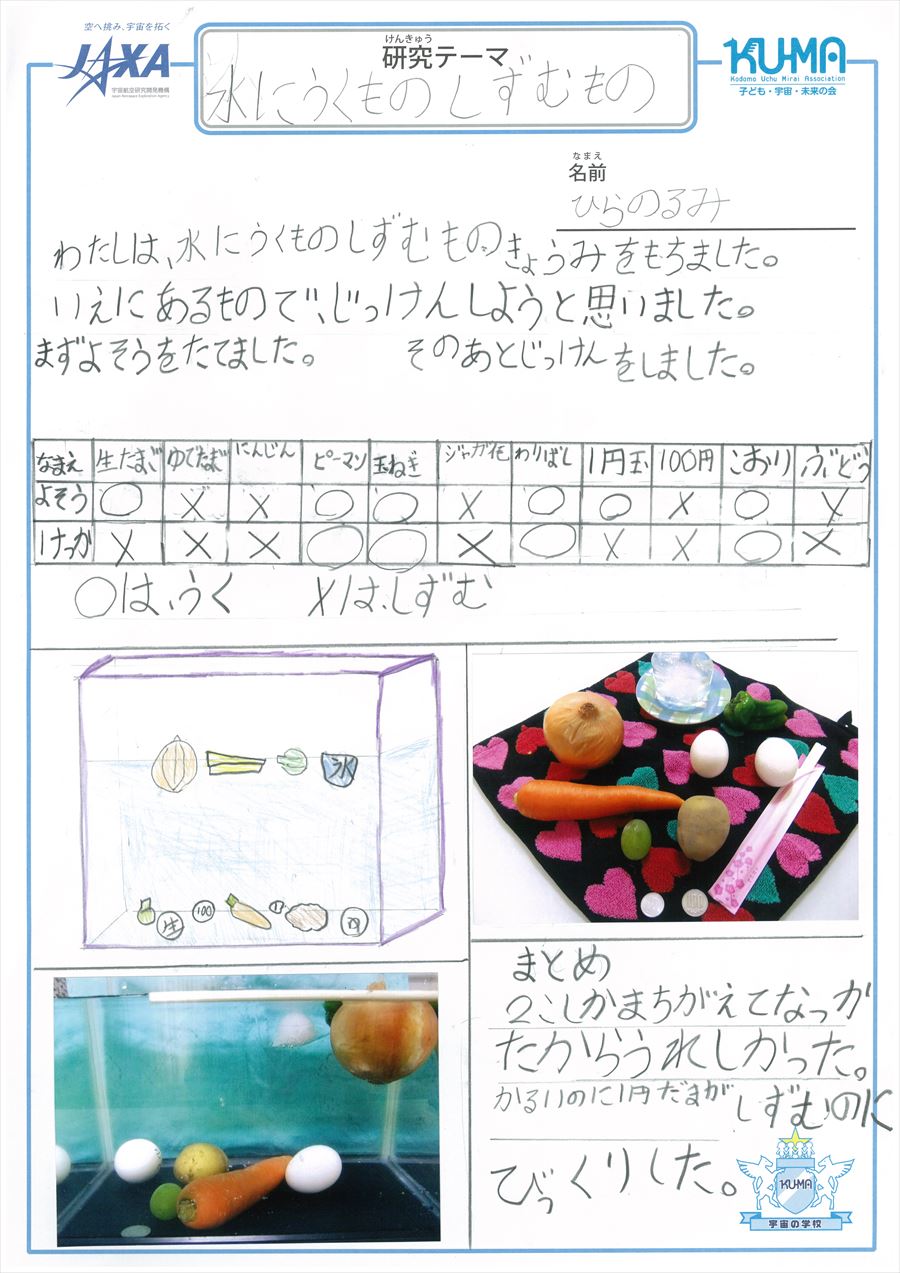 空へ挑み、宇宙を拓く
JAXA
宇宙航空研究開発機構
Japan Aerospace Exploration Agency
けんきゅう
研究テーマ
水にうくものしずむもの
KU-MA
Kodomo Uchu Mirai Association
子ども・宇宙・未来の会
なまえ
名前
ひらのるみ
わたしは、水にうくものしずむものきょうみをもちました。
いえにあるもので、じっけんしようと思いました。
まずよそうをたてました。 そのあとじっけんをしました。
なまえ 生たまご ゆでたまご にんじん ピーマン 玉ねぎ ジャガイモ わりばし 1円玉 100円 こおり ぶどう
よそう ○ × × ○ ○ × ○ ○ × ○ ×
けっか × × × ○ ○ × ○ × × ○ ×
○は、うく ×は、しずむ
氷
生 100
まとめ
2こしかまちがえてなっが
たからうれしかった。
かるいのに1円だまがしずむのに
びっくりした。
KU-MA
宇宙の学校